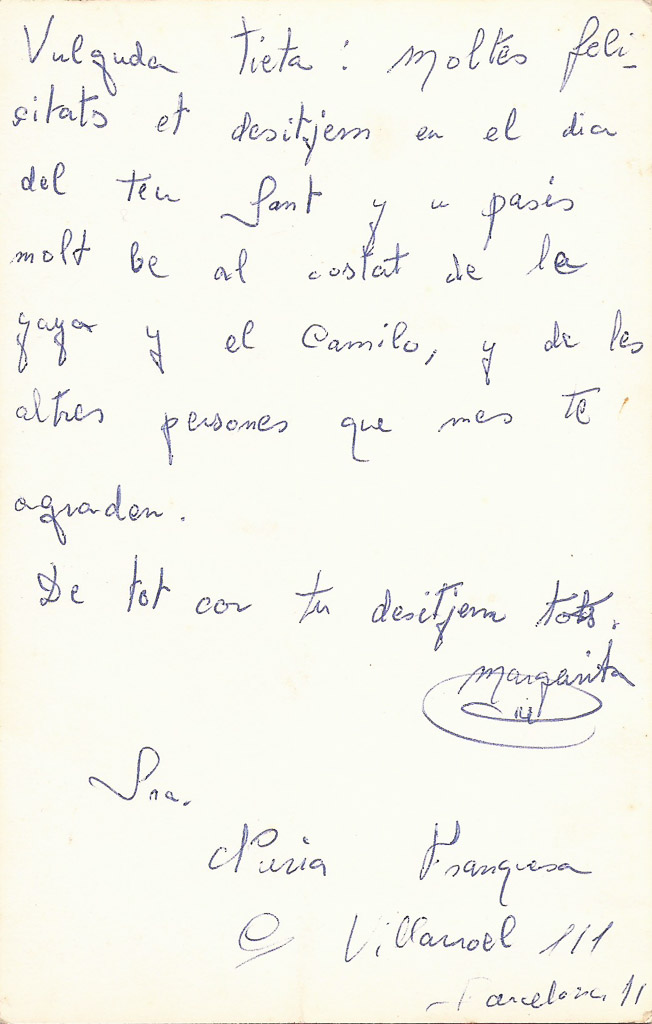 Vulguda Tieta: moltes feli-
citats et desitjem en el dia
del teu Sant y u pasis
molt be al costat de la
yaya y el Camilo, y de les
altres persones que mes te
agraden.
De tot cor tu desitjem tots.
Margarita
Sra.
Nuria Franquesa
C/ Villarroel 111
Barcelona 11